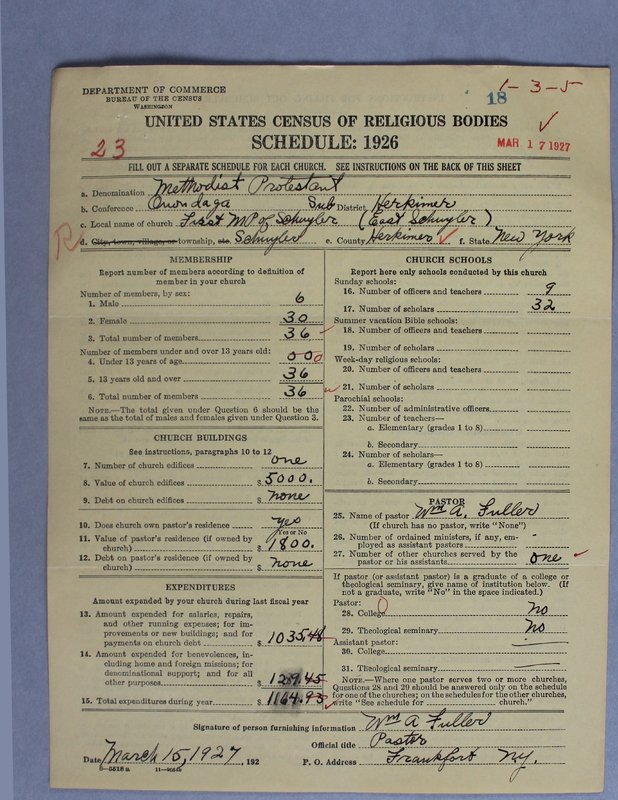 DEPARTMENT OF COMMERCE
BUREAU OF THE CENSUS
WASHINGTON
1-3-5
18
UNITED STATES CENSUS OF RELIGIOUS BODIES
23
SCHEDULE: 1926
MAR 17 1927
FILL OUT A SEPARATE SCHEDULE FOR EACH CHURCH. SEE INSTRUCTIONS ON THE BACK OF THIS SHEET
a. Denomination Methodist Protestant
b. Conference Onondaga Sub District Herkimer
c. Local name of church First M.P. of Schuyler (East Schuyler)
R d. City, town, village, or township, etc. Schuyler e. County Herkimer f. State New York
MEMBERSHIP
Report number of members according to definition of
member in your church
Number of members, by sex:
1. Male 6
2. Female 30
3. Total number of members 36
Number of members under and over 13 years old:
4. Under 13 years of age 000
5. 13 years old and over 36
6. Total number of members 36
NOTE.—The total given under Question 6 should be the
same as the total of males and females given under Question 3.
CHURCH BUILDINGS
See instructions, paragraphs 10 to 12
7. Number of church edifices one
8. Value of church edifices $ 5000.
9. Debt on church edifices $ none
10. Does church own pastor's residence yes
Yes or No
11. Value of pastor's residence (if owned by
church) $ 1800.
12. Debt on pastor's residence (if owned by
church) $ none
EXPENDITURES
Amount expended by your church during last fiscal year
13. Amount expended for salaries, repairs,
and other running expenses; for im-
provements or new buildings; and for
payments on church debt $ 1035.48
14. Amount expended for benevolences, in-
cluding home and foreign missions; for
denominational support; and for all
other purposes $ 129.45
15. Total expenditures during year $ 1164.93
CHURCH SCHOOLS
Report here only schools conducted by this church
Sunday schools:
16. Number of officers and teachers 9
17. Number of scholars 32
Summer vacation Bible schools:
18. Number of officers and teachers
19. Number of scholars
Week-day religious schools:
20. Number of officers and teachers
21. Number of scholars
Parochial schools:
22. Number of administrative officers
23. Number of teachers—
a. Elementary (grades 1 to 8)
b. Secondary
24. Number of scholars—
a. Elementary (grades 1 to 8)
b. Secondary
PASTOR
25. Name of pastor Wm A. Fuller
(If church has no pastor, write "None")
26. Number of ordained ministers, if any, em-
ployed as assistant pastors -
27. Number of other churches served by the
pastor or his assistants one
If pastor (or assistant pastor) is a graduate of a college or
theological seminary, give name of institution below. (If
not a graduate, write "No" in the space indicated.)
Pastor:
28. College No
29. Theological seminary No
Assistant pastor:
30. College
31. Theological seminary
NOTE.—Where one pastor serves two or more churches,
Questions 28 and 29 should be answered only on the schedule
for one of the churches; on the schedules for the other churches,
write "See schedule for church."
Signature of person furnishing information Wm A Fuller
Official title Pastor
Date March 15, 1927, 192 P. O. Address Frankfort N.Y.